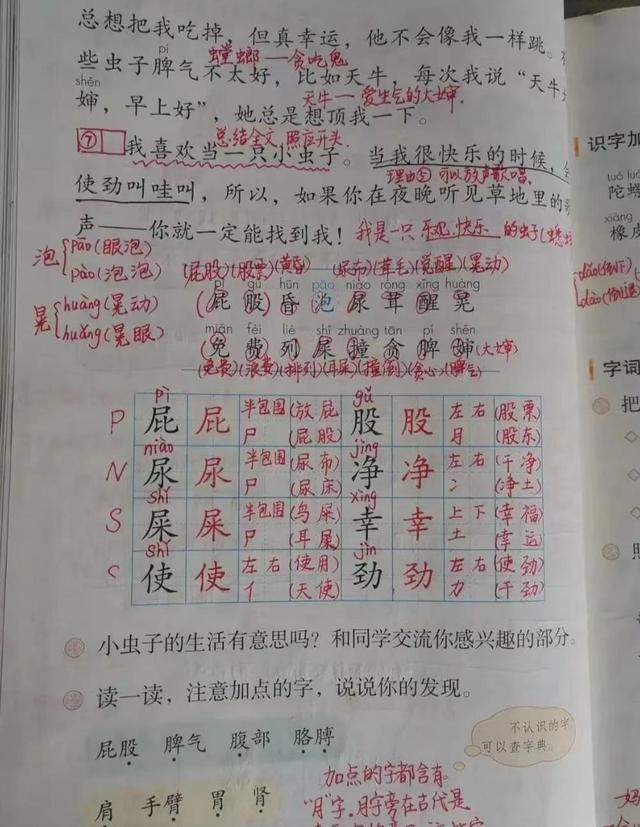 总想把我吃掉，但真幸运，他不会像我一样跳。
螳螂—贪吃鬼
pí
些虫子脾气不太好，比如天牛，每次我说“天牛
天牛—爱生气的大婶
shěn
婶，早上好”，她总是想顶我一下。
⑦ 总结全文，照应开头
我喜欢当一只小虫子。当我很快乐的时候，会
理由⑤可以放声歌唱
使劲叫哇叫，所以，如果你在夜晚听见草地里的歌
声——你就一定能找到我！
我是一只乐观、快乐的虫子
泡 pāo(眼泡) pào(泡泡)
晃 huàng(晃动) huǎng(晃眼)
(屁股)(股票)(黄昏) (尿布)(茸毛)(觉醒)(晃动)
pì gǔ hūn pāo niào róng xǐng huàng
屁 股 昏 泡 尿 茸 醒 晃
miǎn fèi liè shǐ zhuàng tān pí shěn
免 费 列 屎 撞 贪 脾 婶 (大婶)
(免费)(浪费)(排列)(耳屎)(撞倒)(贪心)(脾气)
pì gǔ
P 屁 屁 半包围 尸 (放屁 (屁股) 股 股 左右 月 (股票) (股东)
niào jìng
N 尿 尿 半包围 尸 (尿布) (尿床) 净 净 左右 冫 (干净) (净土)
shǐ xìng
S 屎 屎 半包围 尸 (鸟屎) (耳屎) 幸 幸 上下 土 (幸福) (幸运)
shǐ jìn
使 使 左右 亻 (使用) (天使) 劲 劲 左右 力 (使劲) (干劲)
小虫子的生活有意思吗？和同学交流你感兴趣的部分。
读一读，注意加点的字，说说你的发现。
不认识的字
可以查字典。
屁股 脾气 腹部 胳膊
肩 手臂 胃 肾
加点的字都含有
“月”字，月字旁在古代是
识字加
tuó luó
陀螺
xiàng
橡皮
字词